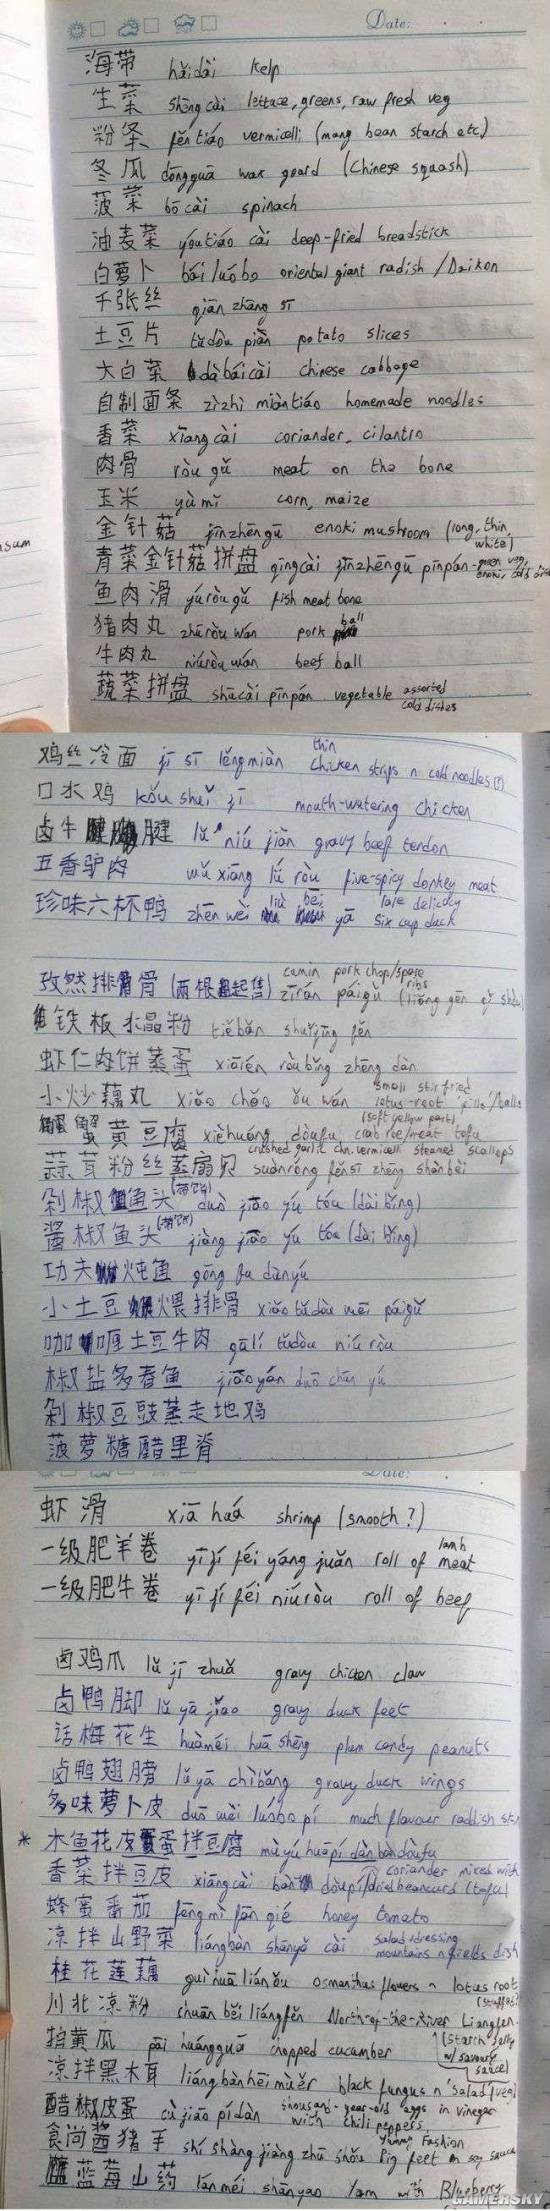 Date:
海带 hǎi dài kelp
生菜 shēng cài lettuce, greens, raw fresh veg
粉条 fěn tiáo vermicelli (mang bean starch etc)
冬瓜 dōngguā wax goard (Chinese squash)
菠菜 bō cài spinach
油麦菜 yóutiáo cài deep-fried breadstick
白萝卜 bái luó bo oriental giant radish / Daikon
千张丝 qiān zhāng sī
土豆片 tǔ dòu piàn potato slices
大白菜 dà bái cài chinese cabbage
自制面条 zì zhì miàn tiáo homemade noodles
香菜 xiāng cài coriander, cilantro
肉骨 ròu gǔ meat on the bone
玉米 yù mǐ corn, maize
金针菇 jīn zhēn gū enoki mushroom (long, thin, white)
sum
青菜金针菇拼盘 qīngcài jīnzhēngū pīnpán - green veg, enoki, cold dishes
鱼肉滑 yú ròu gǔ fish meat bone
猪肉丸 zhū ròu wán pork ball
牛肉丸 niú ròu wán beef ball
蔬菜拼盘 shū cài pīn pán vegetable assorted cold dishes
鸡丝冷面 jī sī lěng miàn thin chicken strips n cold noodles (?)
口水鸡 kǒu shuǐ jī mouth-watering chicken
卤牛腱 lǔ niú jiàn gravy beef tendon
五香驴肉 wǔ xiāng lǘ ròu five-spicy donkey meat
珍味六杯鸭 zhēn wèi liù bēi yā rare delicacy six cup duck
孜然排骨 (两根起售) zīrán páigǔ (liǎng gēn qǐ shòu) cumin pork chop/spare ribs
铁板水晶粉 tiěbǎn shuǐjīng fěn
虾仁肉饼蒸蛋 xiārén ròu bǐng zhēng dàn
小炒藕丸 xiǎo chǎo ǒu wán small stir fried lotus-root pills/balls
蟹黄豆腐 xièhuáng dòufu crab roe/meat tofu (soft yellow part)
蒜茸粉丝蒸扇贝 suànróng fěnsī zhēng shànbèi crushed garlic chn. vermicelli steamed scallops
剁椒鱼头 (带饼) duò jiāo yú tóu (dài bǐng)
酱椒鱼头 (带饼) jiàng jiāo yú tóu (dài bǐng)
功夫炖鱼 gōng fu dùn yú
小土豆煨排骨 xiǎo tǔ dòu wēi páigǔ
咖喱土豆牛肉 gālí tǔdòu niú ròu
椒盐多春鱼 jiāo yán duō chūn yú
剁椒豆豉蒸走地鸡
菠萝糖醋里脊
Date:
虾滑 xiā huá shrimp (smooth?)
一级肥羊卷 yī jí féi yáng juǎn roll of lamb meat
一级肥牛卷 yī jí féi niú ròu roll of beef
卤鸡爪 lǔ jī zhuǎ gravy chicken claw
卤鸭脚 lǔ yā jiǎo gravy duck feet
话梅花生 huàméi huā shēng plum candy peanuts
卤鸭翅膀 lǔ yā chìbǎng gravy duck wings
多味萝卜皮 duō wèi luóbo pí much flavour raddish skin
* 木鱼花皮蛋拌豆腐 mù yú huā pí dàn bàn dòufu
香菜拌豆皮 xiāng cài bàn dòu pí coriander mixed with dried beancurd (tofu)
蜂蜜番茄 fēng mì fān qié honey tomato
凉拌山野菜 liángbàn shānyě cài salad dressing mountains n fields dish
桂花莲藕 guì huā lián ǒu osmanthus flowers n lotus root (stuffed)
川北凉粉 chuān běi liángfěn North-of-the-River Liangfen (starch jelly w/ savoury sauce)
拍黄瓜 pāi huángguā chopped cucumber
凉拌黑木耳 liángbàn hēi mù ěr black fungus n salad (veg)
醋椒皮蛋 cù jiāo pídàn thousand-year-old eggs in vinegar with chili peppers
食尚酱猪手 shí shàng jiàng zhū shǒu Yummy Fashion Pig feet n soy sauce
蓝莓山药 lán méi shānyao Yam with Blueberry
GAMERSKY